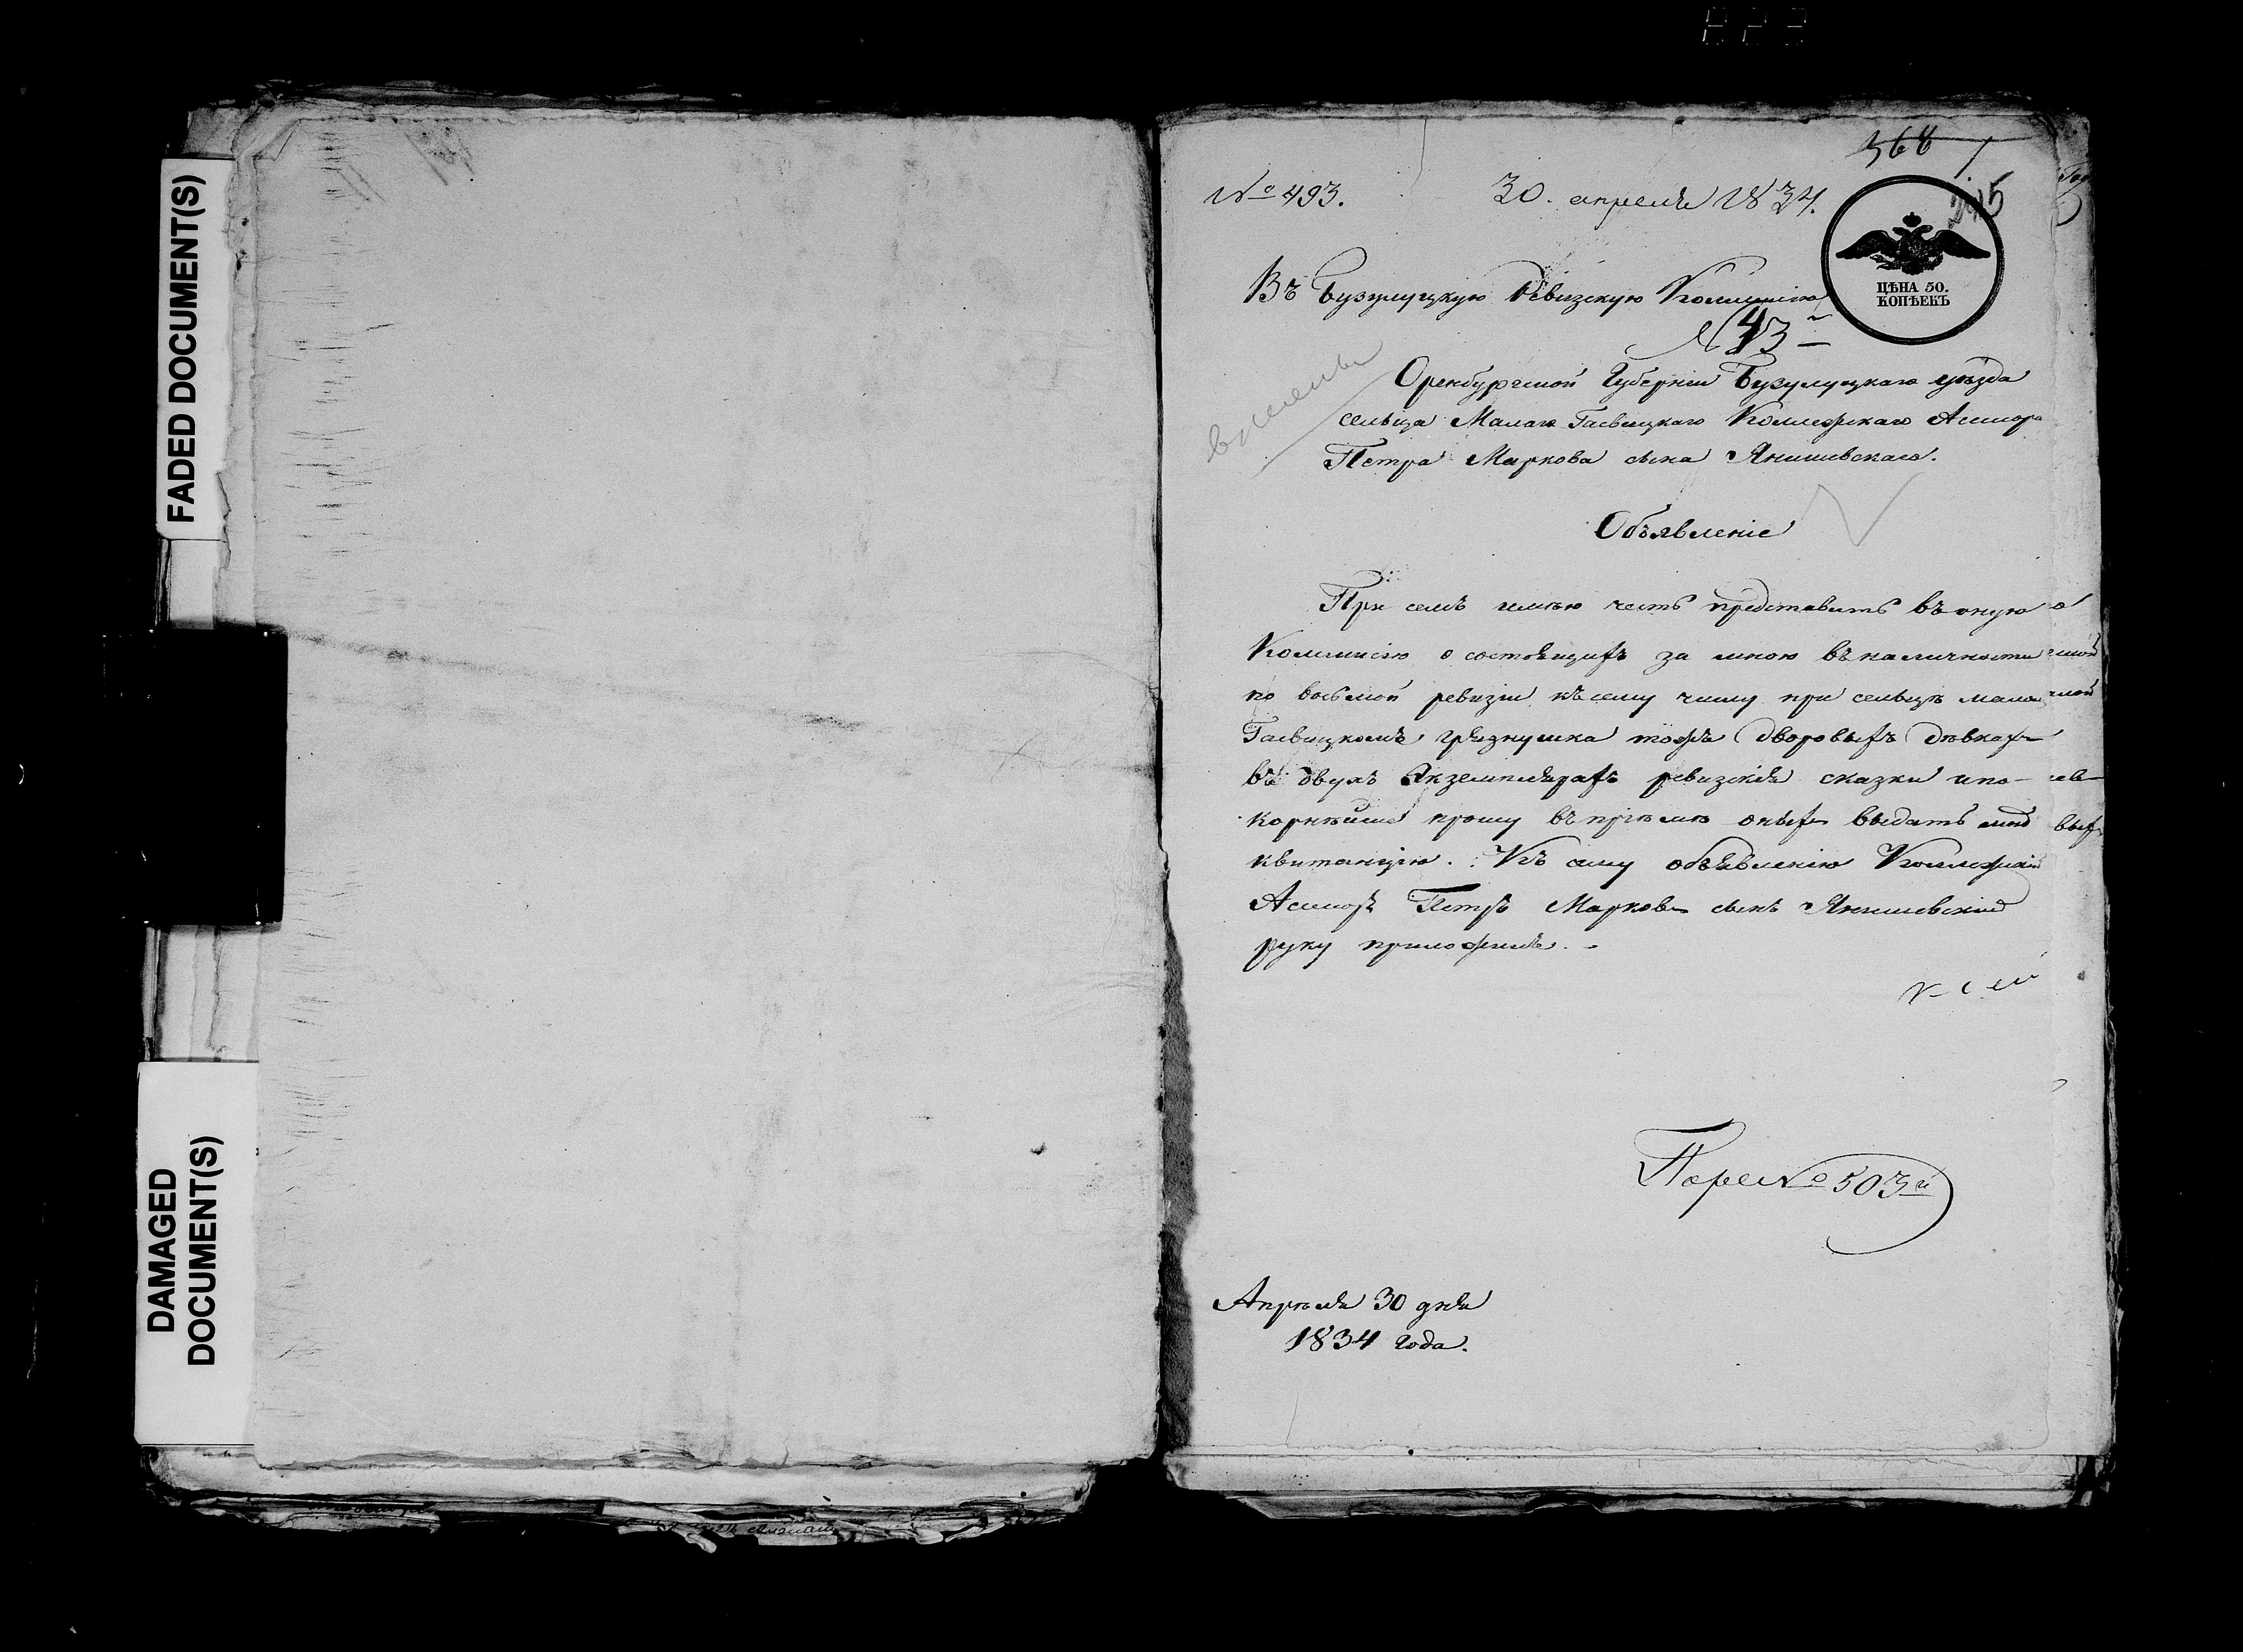 FADED DOCUMENT(S)
DAMAGED
DOCUMENT(S)
568
№ 493. 30. апреля 1834.
245
ЦѢНА 50.
КОПѢЕКЪ
Въ Бузулуцкую Ревизскую Коммисію
№ 43
Оренбургской Губерніи Бузулуцкаго уѣзда
сельца Малаго Гаевицкаго Колежскаго Ассесора
Петра Маркова сына Янишевскаго.
Объявленіе
При семъ имѣю честь представить въ оную
Коммисію о состоящихъ за мною въ наличности
по восьмой ревизіи къ сему числу при сельцѣ малом
Гаевицкомъ грязнушка тожъ дворовыхъ дѣвкахъ
въ двухъ Экземплярахъ ревизскія сказки и по-
корнѣйше прошу въ пріемѣ оныхъ выдать мнѣ
квитанцію. Къ сему объявленію Колежскій
Ассесоръ Петръ Марковъ сынъ Янишевский
руку приложилъ.
№ 503й
Апрѣля 30 дня
1834 года.